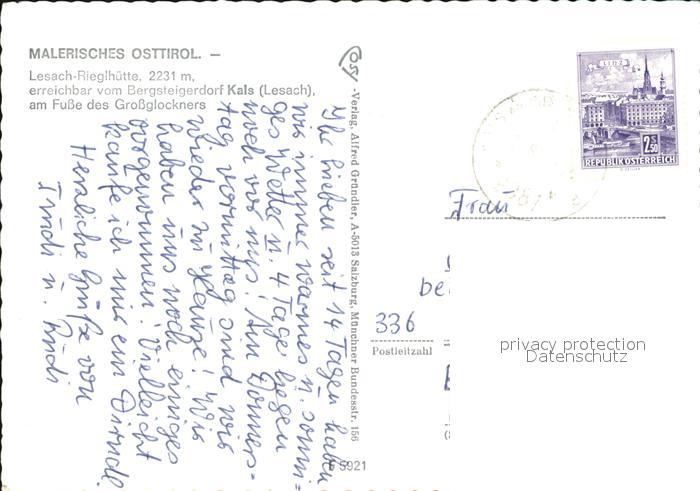 MALERISCHES OSTTIROL. —
Lesach-Rieglhütte, 2231 m,
erreichbar vom Bergsteigerdorf Kals (Lesach),
am Fuße des Großglockners
Ihr Lieben seit 14 Tagen haben
wir immer warmes u. sonni=
ges Wetter u. 4 Tage liegen
noch vor uns! Am Donners=
tag vormittag sind wir
wieder zu Hause! Wir
haben uns noch einiges
vorgenommen. Vielleicht
kaufe ich mir ein Dirndl.
Herzliche Grüße von
Trudi u. Rudi
OSV -Verlag, Alfred Gründler, A-5013 Salzburg, Münchner Bundesstr. 156
5921
LINZ
2.50
REPUBLIK ÖSTERREICH
Frau
be
336
Postleitzahl
privacy protection
Datenschutz